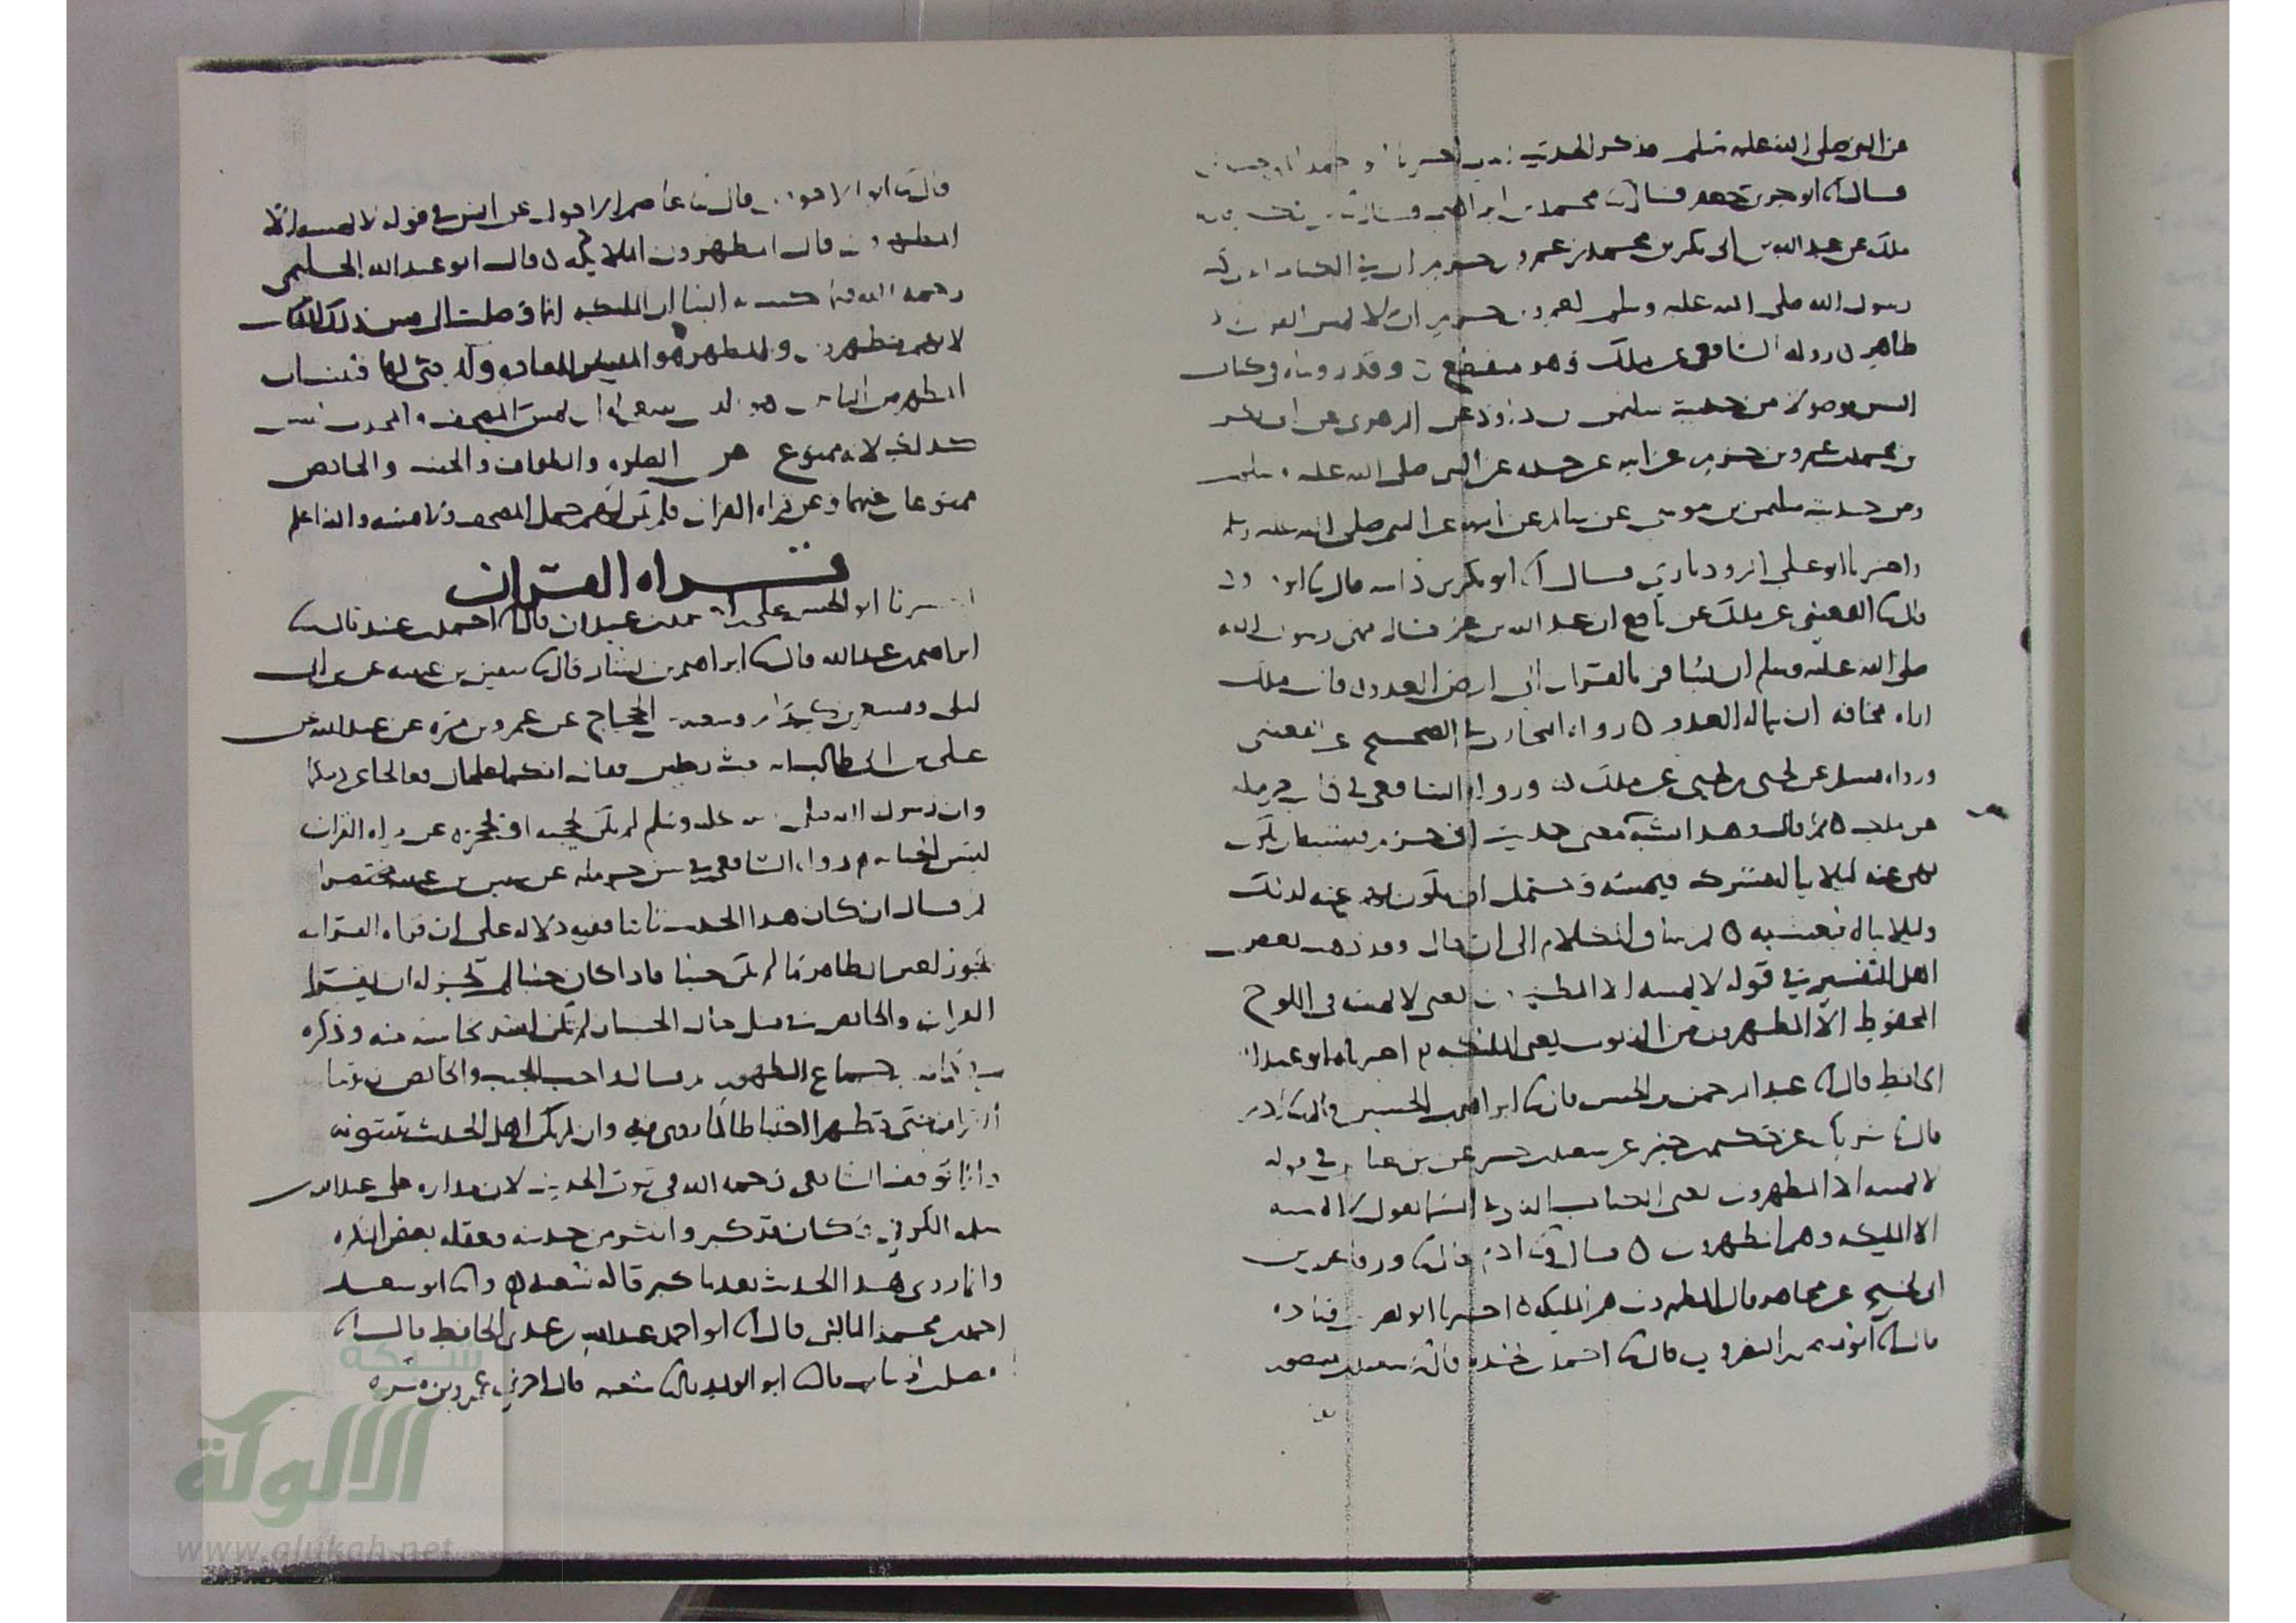 عن النبي صلى الله عليه وسلم فذكر الحديث
قال ابو بن جعفر قال محمد بن ابراهيم قال
ملك عن عبد الله بن ابى بكر بن محمد بن عمرو بن حزم ان في الكتاب الذى كتبه
رسول الله صلى الله عليه وسلم لعمرو بن حزم ان لا يمس القران الا
طاهر ن رواه الشافعى عن ملك وهو منقطع ن وقد رويناه في كتاب
السنن موصولا من حديث سليمن بن داود عن الزهرى عن ابى بكر
بن محمد بن عمرو بن حزم عن ابيه عن جده عن النبي صلى الله عليه وسلم
ومن حديث سليمن بن موسى عن سالم عن ابيه عن النبي صلى الله عليه وسلم
واخبرنا ابو على الروذبارى قال انا ابو بكر بن داسه قال نا ابو داود
قال نا القعنبى عن ملك عن نافع ان عبد الله بن عمر قال نهى رسول الله
صلى الله عليه وسلم ان يسافر بالقران الى ارض العدو ن قال ملك
اراه مخافه ان يناله العدو ه رواه البخارى في الصحيح عن القعنبى
ورواه مسلم عن يحيى بن يحيى عن ملك ن ورواه الشافعى في حرمله
عن ملك ه ثم قال وهذا يشبه معنى حديث ابن حزم فيشبه ان يكون
نهى عنه ليلا يناله مشرك فيمسه ويحتمل ان يكون نهى عنه لذلك
وليلا يناله بعينه ه ثم ساق الكلام الى ان قال وقد ذهب بعض
اهل التفسير في قوله لا يمسه الا المطهرون يعنى لا يمسه في اللوح
المحفوظ الا المطهرون من الذنوب يعنى الملئكه ن اخبرناه ابو عبد الله
الحافظ قال انا عبد الرحمن بن الحسن قال نا ابراهيم بن الحسين قال نا ادم
قال نا شريك عن حكيم بن جبير عن سعيد بن جبير عن ابن عباس في قوله
لا يمسه الا المطهرون يعنى الكتاب الذى في السما يقول لا يمسه
الا المليكه وهم المطهرون ه قال ونا ادم قال نا ورقا عن ابن
ابى نجيح عن مجاهد قال المطهرون هم المليكه ه اخبرنا ابو نصر بن قتاده
قال انا ابو منصور النضروى قال نا احمد بن نجده قال نا سعيد بن منصور
قال نا ابو الاحوص قال نا عاصم الاحول عن انس في قوله لا يمسه الا
المطهرون قال المطهرون الملايكه ن قال ابو عبد الله الحليمى
رحمه الله فيما كتب به الينا ان الملئكه انما وصلت الى مس ذلك الكتاب
لانهم مطهرون والمطهر هو الميسر للعباده
المطهر من الناس هو الذى ينبغى له ان يمس المصحف والمحدث ليس
كذلك لانه ممنوع عن الصلوه والطواف والجنب والحايض
ممنوعان عنهما وعن قراه القران فلم يكن لهم حمل المصحف ولا مسه والله اعلم
قراه القران
اخبرنا ابو الحسن على بن احمد بن عبدان قال انا احمد بن عبيد قال نا
ابراهيم بن عبد الله قال نا ابراهيم بن بشار قال نا سفين بن عيينه عن ابن ابى
ليلى ومسعر بن كدام وشعبه بن الحجاج عن عمرو بن مره عن عبد الله بن
على بن ابى طالب انه بعث رجلين وقال انكما علجان فعالجا عن دينكما
وان رسول الله صلى الله عليه وسلم لم يكن يحجبه او يحجزه عن قراه القران
ليس الجنابه ه رواه الشافعى في سنن حرمله عن سفين بن عيينه مختصرا
ثم قال ان كان هذا الحديث ثابتا ففيه دلاله على ان قراه القران
تجوز لغير الطاهر ما لم يكن جنبا فاذا كان جنبا لم يجز له ان يقرا
القران والحايض في مثل حال الجنب ان لم تكن اشد نجاسه منه وذكره
في كتاب جماع الطهور ثم قال واحب للجنب والحايض ان يدعا
القران حتى يطهرا احتياطا لما روى فيه وان لم يكن اهل الحديث يثبتونه
وانما توقف الشافعى رحمه الله في ثبوت الحديث لان مداره على عبد الله بن
سلمه الكوفى وكان قد كبر وانكر من حديثه وعقله بعض النكره
وانما روى هذا الحديث بعد ما كبر قاله شعبه ه وانا ابو سعد
احمد بن محمد المالينى قال انا ابو احمد عبد الله بن عدى الحافظ قال انا
الفضل بن الحباب قال نا ابو الوليد قال نا شعبه قال اخبرنى عمرو بن مره
شبكة
الألوكة
www.alukah.net